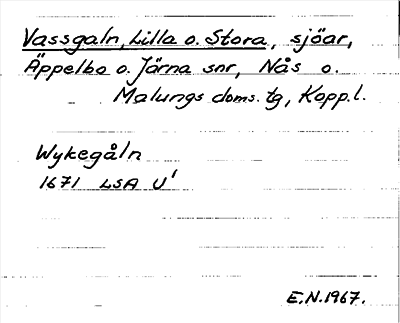 Vassgaln, Lilla o. Stora, sjöar,
Äppelbo o. Järna snr, Nås o.
Malungs doms. tg, Kopp. l.
Wykegåln
1671 LSA U'
E.N. 1967.